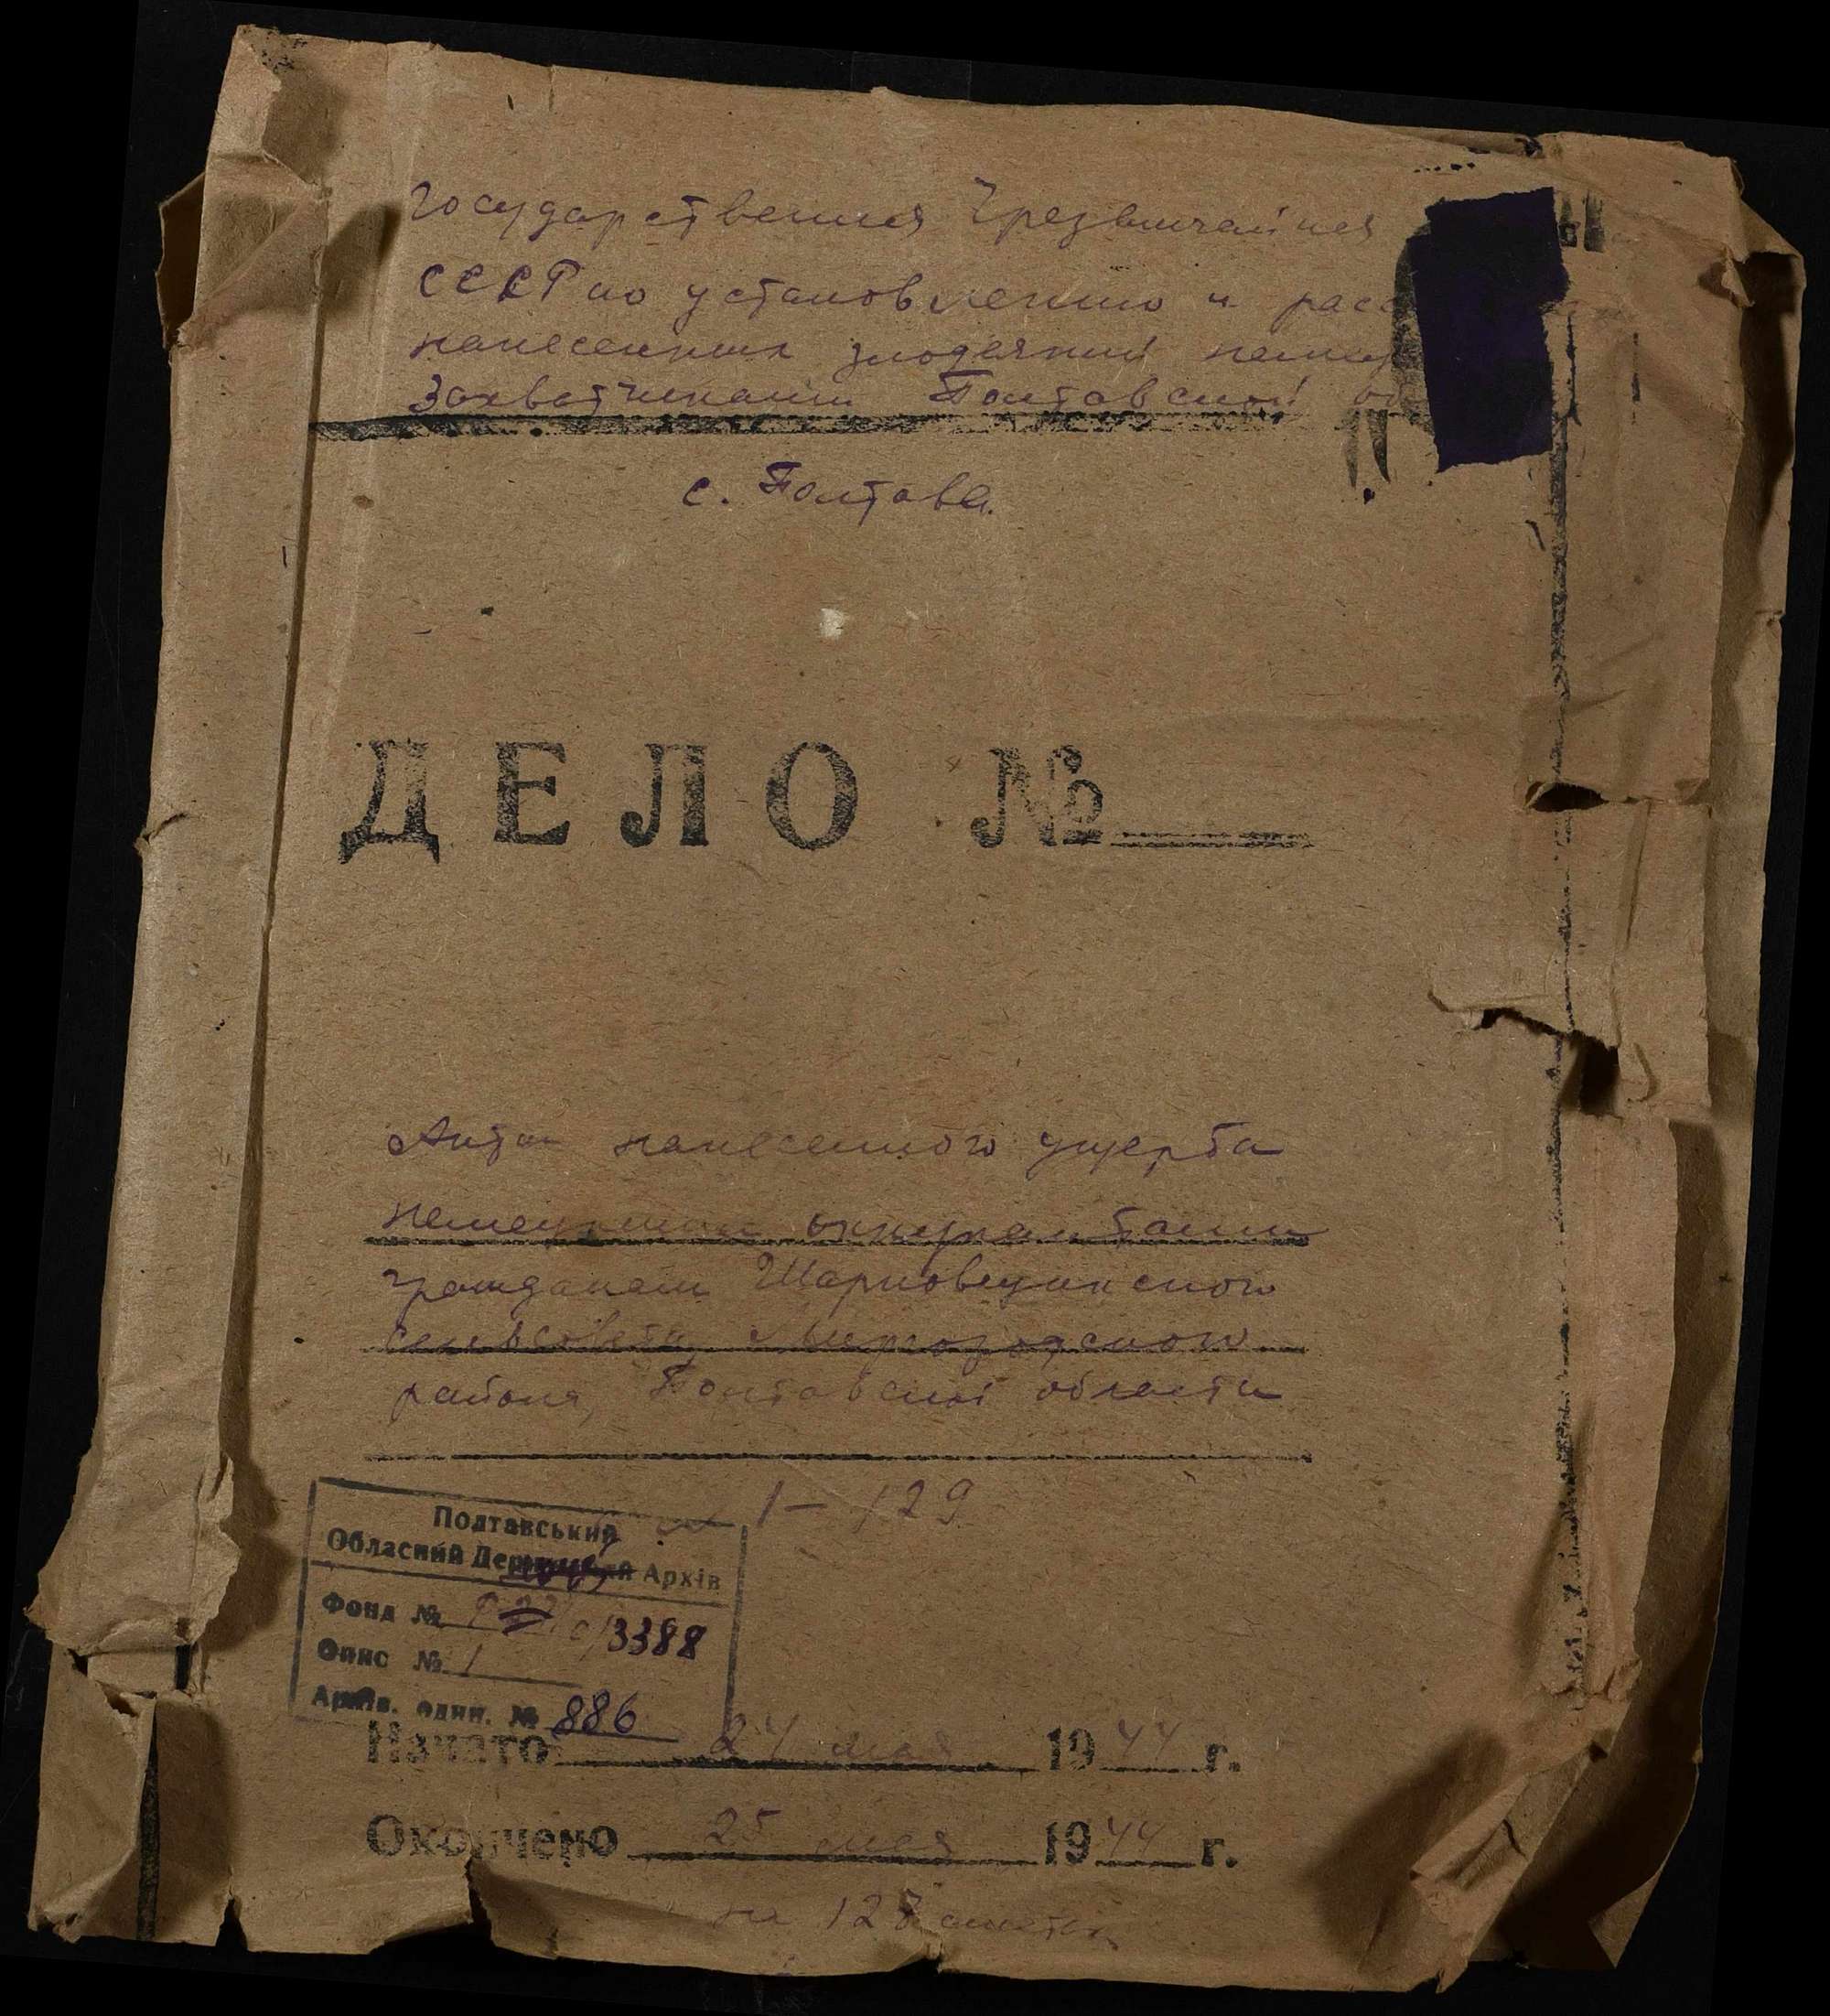 Государственная Чрезвичайная
СССР по установлению и расс
нанесенных злодеяний немец
захватчиками Полтавской об
с. Полтава.
ДЕЛО №
Акты нанесенного ущерба
немецкими оккупантами
гражданам Шарковщинского
сельсовета, Миргородского
района, Полтавской области
1 – 129
Полтавський
Обласний Державний Архів
Фонд № Р 3388
Опис № 1
Архів. один. № 886
Начато 24 мая 1944 г.
Окончено 25 мая 1944 г.
на 128 листах